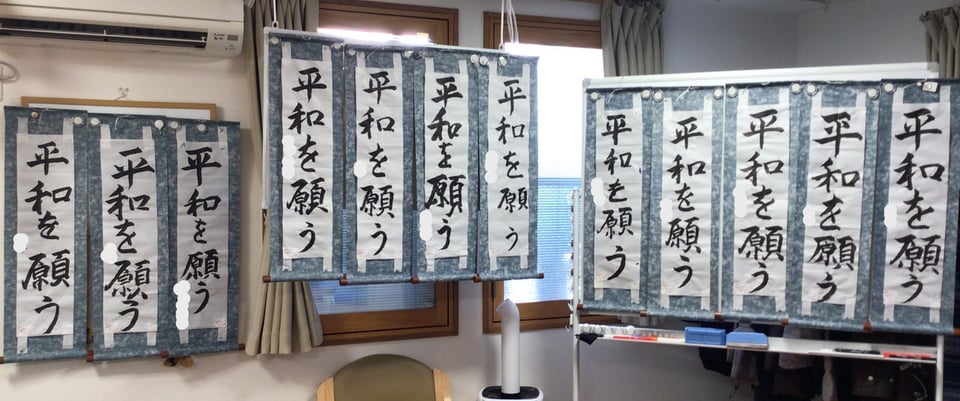 平和を願う
平和を願う
平和を願う
平和を願う
平和を願う
平和を願う
平和を願う
平和を願う
平和を願う
平和を願う
平和を願う
平和を願う